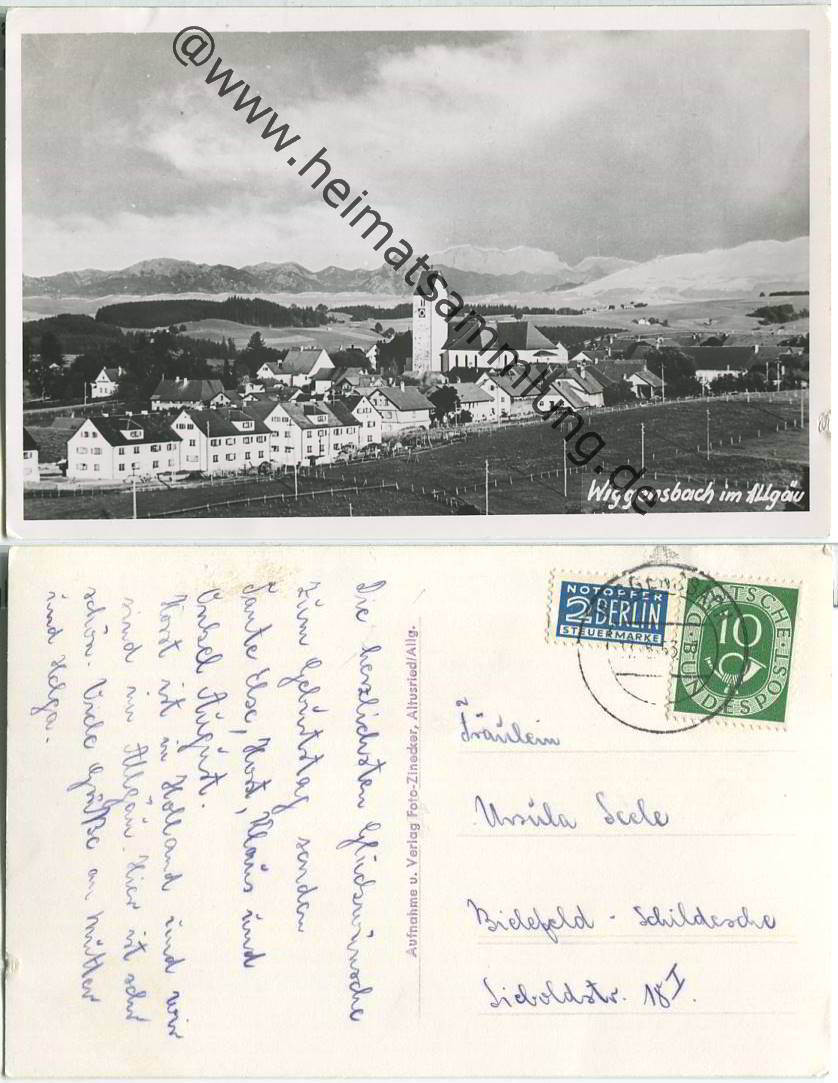 @www.heimatsammlung.de
Wiggensbach im Allgäu
Die herzlichsten Glückwünsche
zum Geburtstag senden
Tante Else, Horst, Klaus und
Onkel August.
Horst ist in Holland und wir
sind im Allgäu. Hier ist sehr
schön. Viele Grüße an Mutter
und Helga.
Aufnahme u. Verlag Foto-Zinecker, Altusried/Allg.
NOTOPFER
2 BERLIN
STEUERMARKE
DEUTSCHE BUNDESPOST
10
Fräulein
Ursula Seele
Bielefeld - Schildesche
Sieboldstr. 18 I.